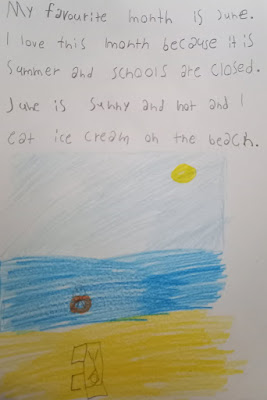 My favourite month is June.
I love this month because it is
Summer and schools are closed.
June is sunny and hot and I
eat ice cream on the beach.